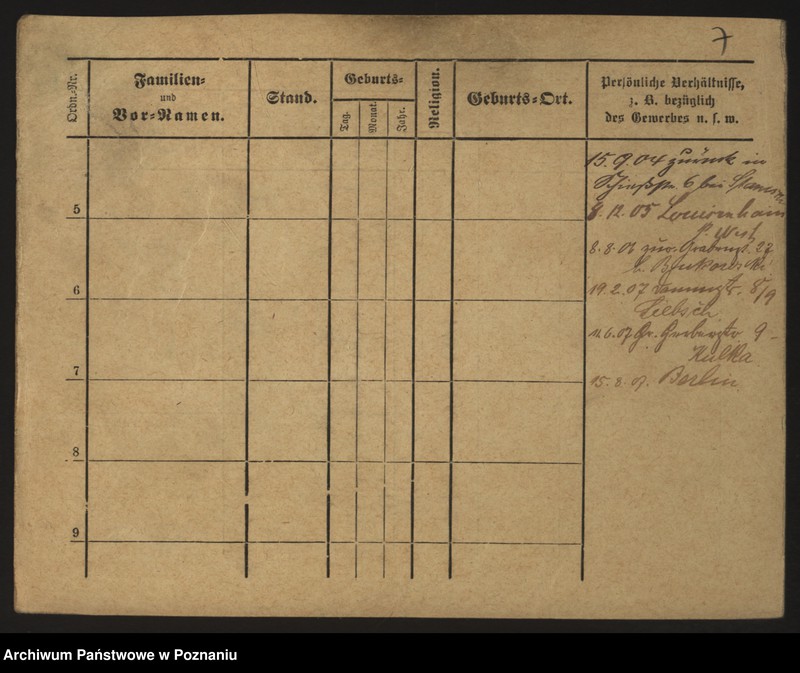 7
Ordn.-Nr.
Familien-
und
Vor-Namen.
Stand.
Geburts-
Tag.
Monat.
Jahr.
Religion.
Geburts-Ort.
Persönliche Verhältnisse,
z. B. bezüglich
des Gewerbes u. s. w.
15.9.04 zurück in
6 bei
8.12.05 Louisenhain
P. West
8.8.06 zur. 27
b.
19.2.07 8/9
Liebsch
11.6.07 Gr. Gerberstr 9
Kulka
15.8.07. Berlin
5
6
7
8
9
Archiwum Państwowe w Poznaniu